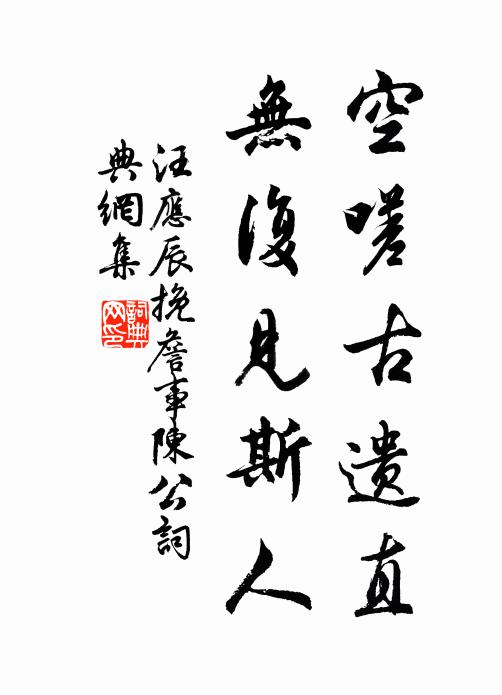 空嗟古遺直
無復見斯人
汪應辰挽詹事陳公詞
典網集
詞典
网印